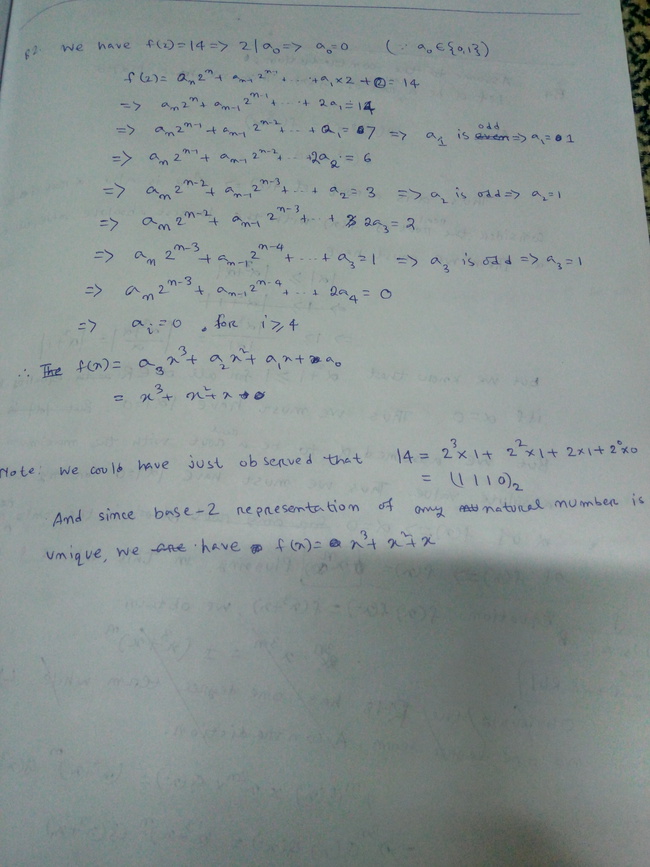 R2. We have f(2)=14 => 2|a₀ => a₀=0 (∵ a₀∈{0,1})
f(2)= aₙ2ⁿ + aₙ₋₁2ⁿ⁻¹ + ... + a₁×2 + 0 = 14
=> aₙ2ⁿ + aₙ₋₁2ⁿ⁻¹ + ... + 2a₁ = 14
=> aₙ2ⁿ⁻¹ + aₙ₋₁2ⁿ⁻² + ... + a₁ = 7 => a₁ is odd => a₁ = 1
=> aₙ2ⁿ⁻¹ + aₙ₋₁2ⁿ⁻² + ... 2a₂ = 6
=> aₙ2ⁿ⁻² + aₙ₋₁2ⁿ⁻³ + ... + a₂ = 3 => a₂ is odd => a₂=1
=> aₙ2ⁿ⁻² + aₙ₋₁2ⁿ⁻³ + ... + 2a₃ = 2
=> aₙ2ⁿ⁻³ + aₙ₋₁2ⁿ⁻⁴ + ... + a₃ = 1 => a₃ is odd => a₃=1
=> aₙ2ⁿ⁻³ + aₙ₋₁2ⁿ⁻⁴ + ... + 2a₄ = 0
=> aᵢ=0, for i⩾4
∴ f(x) = a₃x³ + a₂x² + a₁x + a₀
= x³ + x² + x
Note: we could have just observed that 14 = 2³×1 + 2²×1 + 2×1 + 2⁰×0
= (1110)₂
And since base-2 representation of any natural number is
unique, we have f(x) = x³ + x² + x